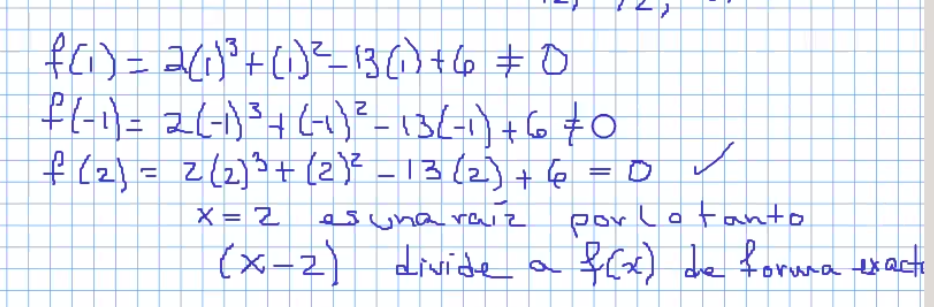 f(1) = 2(1)³ + (1)² - 13(1) + 6 ≠ 0
f(-1) = 2(-1)³ + (-1)² - 13(-1) + 6 ≠ 0
f(2) = 2(2)³ + (2)² - 13(2) + 6 = 0 ✓
x = 2 es una raíz por lo tanto
(x-2) divide a f(x) de forma exact